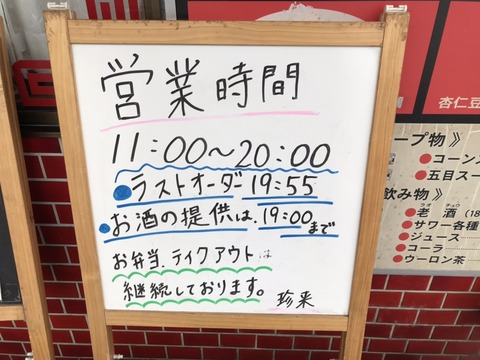 営業時間
11:00〜20:00
●ラストオーダー19:55
●お酒の提供は、19:00まで
お弁当、テイクアウトは
継続しております。
珍来
杏仁豆
ープ物》
●コーンス
●五目スー
飲み物》
●老酒(18
ラオチュウ
●サワー各種
●ジュース
●コーラ
●ウーロン茶